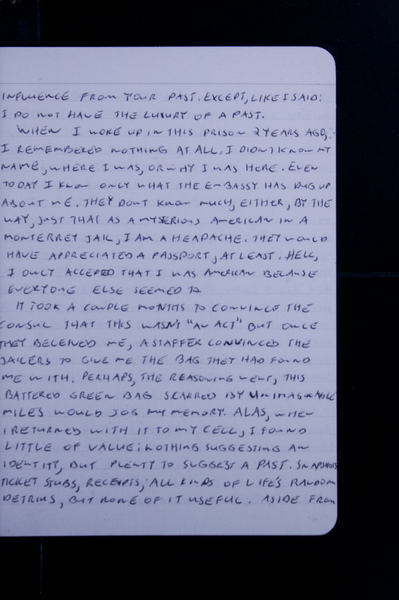 INFLUENCE FROM YOUR PAST. EXCEPT, LIKE I SAID:
I DO NOT HAVE THE LUXURY OF A PAST.
WHEN I WOKE UP IN THIS PRISON 2 YEARS AGO,
I REMEMBERED NOTHING AT ALL. I DIDN'T KNOW MY
NAME, WHERE I WAS, OR WHY I WAS HERE. EVEN
TODAY I KNOW ONLY WHAT THE EMBASSY HAS DUG UP
ABOUT ME. THEY DON'T KNOW MUCH, EITHER, BY THE
WAY, JUST THAT AS A MYSERIOUS AMERICAN IN A
MONTERREY JAIL, I AM A HEADACHE. THEY WOULD
HAVE APPRECIATED A PASSPORT, AT LEAST. HELL,
I ONLY ACCEPTED THAT I WAS AMERICAN BECAUSE
EVERYONE ELSE SEEMED TO.
IT TOOK A COUPLE MONTHS TO CONVINCE THE
CONSUL THAT THIS WASN'T "AN ACT" BUT ONCE
THEY BELEIVED ME, A STAFFER CONVINCED THE
JAILERS TO GIVE ME THE BAG THEY HAD FOUND
ME WITH. PERHAPS, THE REASONING WENT, THIS
BATTERED GREEN BAG SCARRED BY UNIMAGINABLE
MILES WOULD JOG MY MEMORY. ALAS, WHEN
I RETURNED WITH IT TO MY CELL, I FOUND
LITTLE OF VALUE: NOTHING SUGGESTING AN
IDENTITY, BUT PLENTY TO SUGGEST A PAST. SNAPSHOTS
TICKET STUBS, RECEIPTS, ALL KINDS OF LIFE'S RANDOM
DETRIUS, BUT NONE OF IT USEFUL. ASIDE FROM